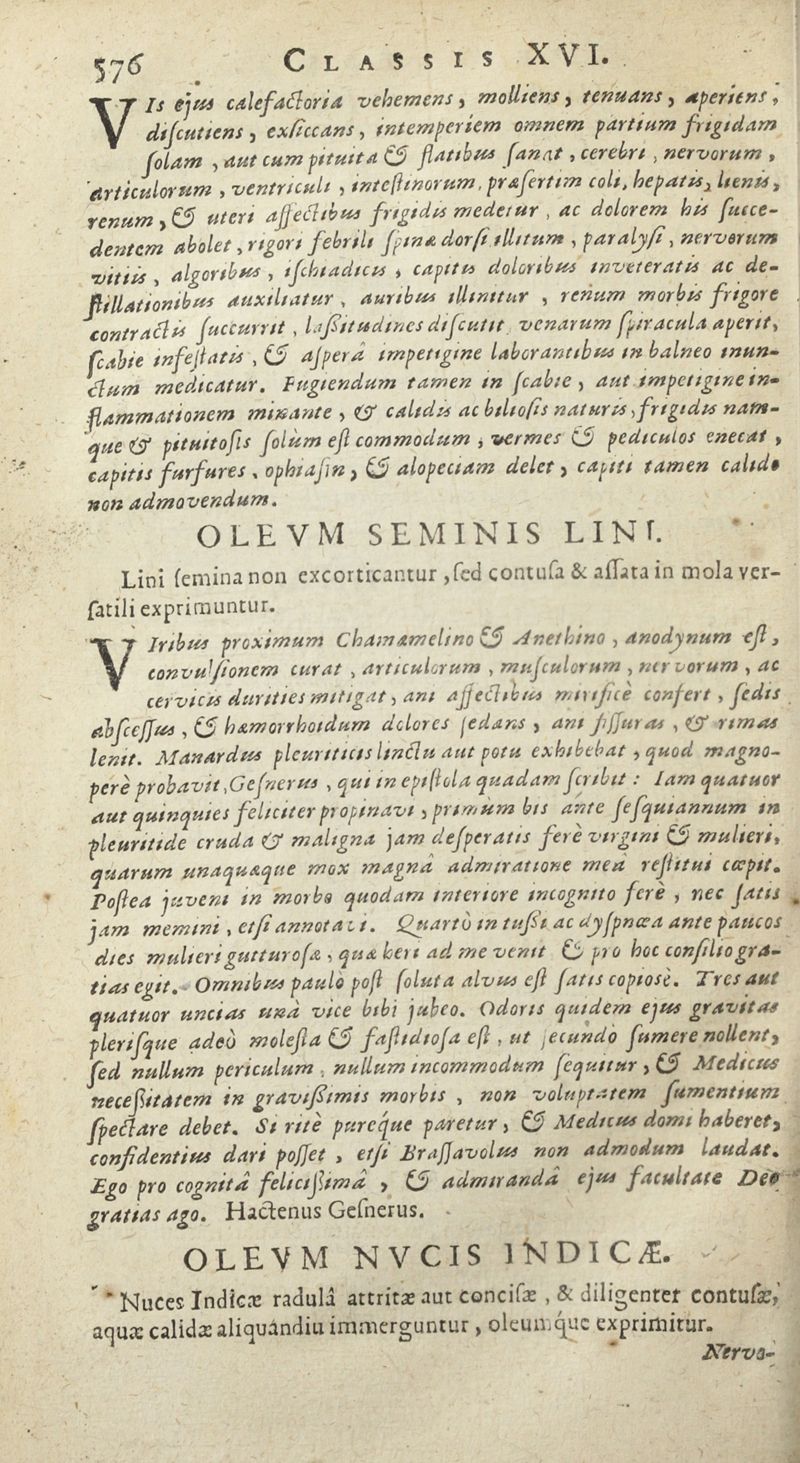 576 CLASSIS XVI.
VIs ejus calefactoria vehemens, molliens, tenuans, aperiens,
discutiens, exsiccans, intemperiem omnem partium frigidam
solam, aut cum pituita & flatibus sanat, cerebri, nervorum,
articulorum, ventriculi, intestinorum, præsertim coli, hepatis, lienis,
renum, & uteri affectibus frigidis medetur, ac dolorem his succe-
dentem abolet, rigori febrili spinæ dorsi illitum, paralysi, nervorum
vitiis, algoribus, ischiadicis, capitis doloribus inveteratis ac de-
stillationibus auxiliatur, auribus illinitur, renum morbis frigore
contractis succurrit, lassitudines discutit, venarum spiracula aperit,
scabie infestatis, & asperâ impetigine laborantibus in balneo inun-
ctum medicatur. Fugiendum tamen in scabie, aut impetigine in-
flammationem minante, & calidis ac biliosis naturis, frigidis nam-
que & pituitosis solùm est commodum, vermes & pediculos enecat,
capitis furfures, ophiasin, & alopeciam delet, capiti tamen calido
non admovendum.
OLEVM SEMINIS LINI.
Lini semina non excorticantur, sed contusa & assata in mola ver-
satili exprimuntur.
VIribus proximum Chamæmelino & Anethino, anodynum est,
convulsionem curat, articulorum, musculorum, nervorum, ac
cervicis durities mitigat, ani affectibus mirificè confert, sedis
abscessus, & hæmorrhoidum dolores sedans, ani fissuras, & rimas
lenit. Manardus pleuriticis linctu aut potu exhibebat, quod magno-
perè probavit, Gesnerus, qui in epistola quadam scribit: Iam quatuor
aut quinquies feliciter propinavi, primum bis ante sesquiannum in
pleuritide cruda & maligna jam desperatis ferè virgini & mulieri,
quarum unaquæque mox magnâ admiratione meâ restitui cœpit.
Postea juveni in morbo quodam interiore incognito ferè, nec satis
jam memini, etsi annotavi. Quartò in tussi ac dyspnœa ante paucos
dies mulieri gutturosæ, quæ heri ad me venit & pro hoc consilio gra-
tias egit. Omnibus paulo post soluta alvus est satis copiosè. Tres aut
quatuor uncias unâ vice bibi jubeo. Odoris quidem ejus gravitas
plerisque adeò molesta & fastidiosa est, ut secundò sumere nollent,
sed nullum periculum, nullum incommodum sequitur, & Medicus
necessitatem in gravissimis morbis, non voluptatem sumentium
spectare debet. Si ritè pureque paretur, & Medicus domi haberet,
confidentius dari posset, etsi Brassavolus non admodum laudat.
Ego pro cognitâ felicissimâ, & admirandâ ejus facultate Deo
gratias ago. Hactenus Gesnerus.
OLEVM NVCIS INDICÆ.
Nuces Indicæ radulâ attritæ aut concisæ, & diligenter contusæ,
aquæ calidæ aliquándiu immerguntur, oleumque exprimitur.
Nervo-